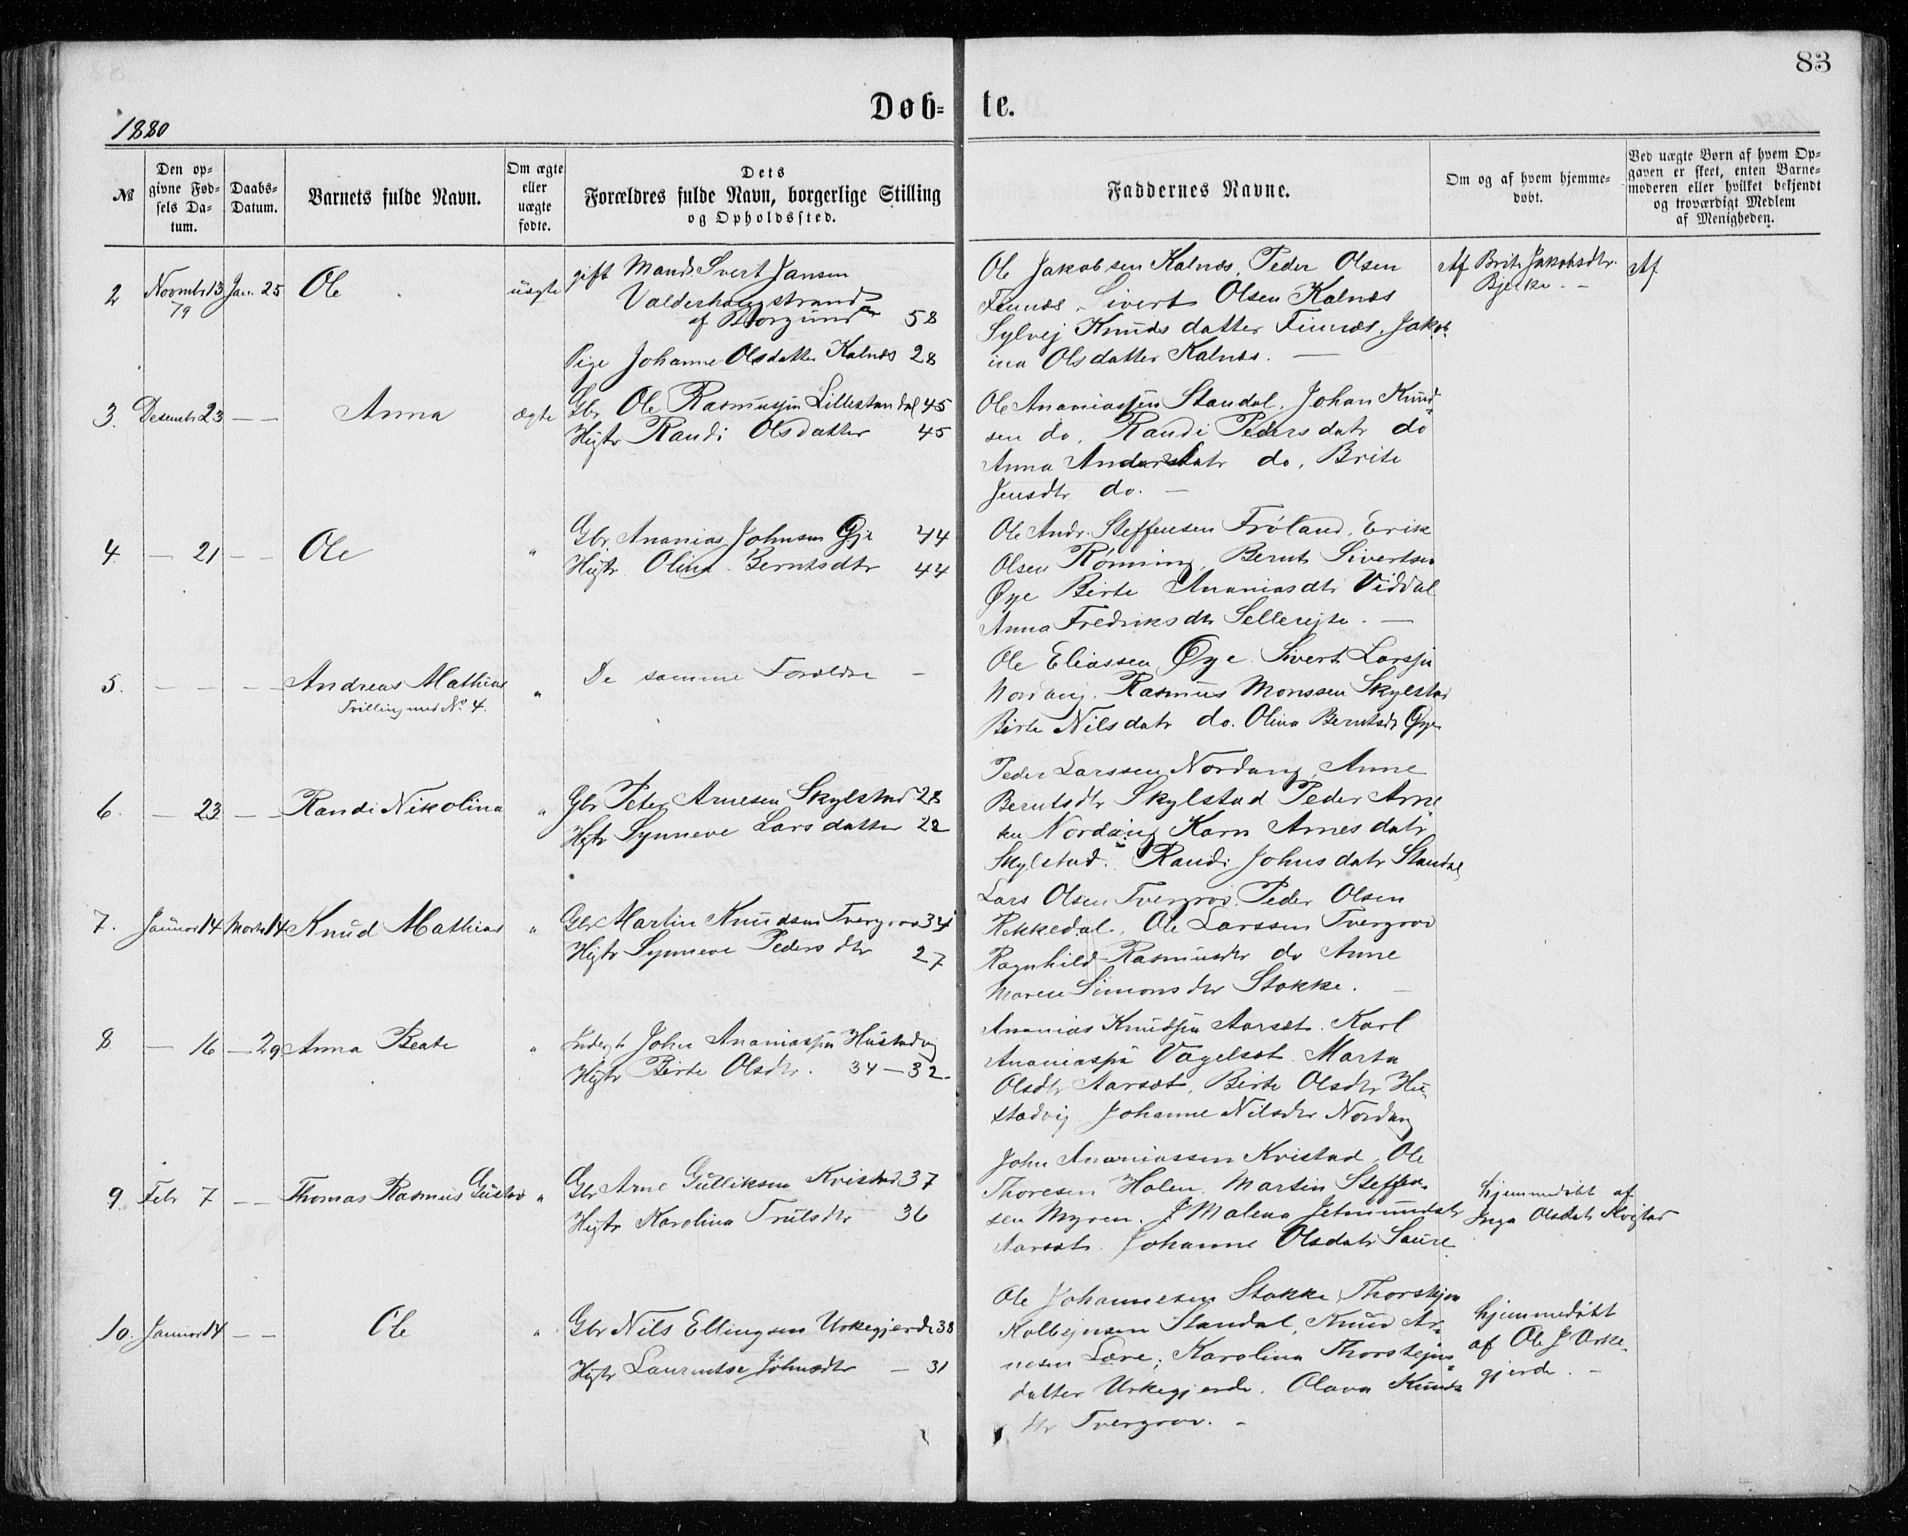 83
Døb-te.
1880
№
Den opgivne Fødsels Datum.
Daabs-Datum.
Barnets fulde Navn.
Om ægte eller uægte fødte.
Dets Forældres fulde Navn, borgerlige Stilling og Opholdssted.
Faddernes Navne.
Om og af hvem hjemmedøbt.
Ved uægte Børn af hvem Opgaven er skeet, enten Barnemoderen eller hvilket bekjendt og troværdigt Medlem af Menigheden.
2 Novmbr 13 79 Jan. 25 Ole uægte
gift Mand Sivert Jansen
Valderhaugstrand
af Borgund 58
Pige Johanne Olsdatter Kalnæs 28
Ole Jakobsen Kalnæs, Peder Olsen
Finnæs, Sivert Olsen Kalnæs
Sylvej Knudsdatter Finnæs, Jakob
ina Olsdatter Kalnæs. —
Af Brit Jakobsdtr.
Bjerke. —
Af
3. Desembr 23 — — Anna ægte
Gbr. Ole Rasmussen Lillestandal 45
Hustr Randi Olsdatter 45
Ole Ananiassen Standal, Johan Knud-
sen do, Randi Pedersdatr do
Anna Andersdatr do, Brite
Jensdtr do. —
4. — 21 — — Ole "
Gbr. Ananias Johnsen Øje 44
Hustr Olina Berntsdtr 44
Ole Andr. Steffensen Frøland, Erik
Olsen Rønning, Bernt Sivertsen
Øye Birte Ananiasdtr Viddal
Anna Fredriksdtr Sellereite. —
5. — — — — Andreas Mathias "
Tvilling med No. 4.
De samme Forældre —
Ole Eliassen Øye Sivert Larssen
Nordang, Rasmus Monssen Skylstad
Birte Nilsdatr do. Olina Berntsdt Øye
6. — 23 — — Randi Nikolina "
Gbr Peter Arnesen Skylstad 28
Hustr Synneve Larsdatter 22
Peder Larssen Nordang, Anne
Berntsdtr Skylstad Peder Arne
sen Nordang Karn Arnesdatr
Skylstad. Randi Johnsdatr Standal
7. Januar 14 Marts 14 Knud Mathias "
Gbr Martin Knudsen Tvergrov 34
Hustr Synneve Pedersdtr 27
Lars Olsen Tvergrov, Peder Olsen
Rekkedal, Ole Larssen Tvergrov
Ragnhild Rasmusdtr do Anne
Maren Simonsdtr Stokke. —
8 — 16 — 29 Anna Beate "
Inderst John Ananiassen Hustadvig
Hustr Birte Olsdtr. 34 — 32
Ananias Knudsen Aarset. Karl
Ananiassen Vagelsot. Marta
Olsdtr Aarset, Birte Olsdtr Hu-
stadvig Johanne Nilsdtr Nordang
9. Febr 7 — — Thomas Rasmus Gustav "
Gbr Arne Gulliksen Kvistad 37
Hustr Karolina Trulsdtr 36
John Ananiassen Kvistad, Ole
Thoresen Holen, Martin Steffen-
sen Myren. J Malena Jetmundsdtr
Aarset. Johanne Olsdatr Saure
hjemmedøbt af
Inga Olsdatr Kvistad
10. Januar 14 — — Ole "
Gbr Nils Ellingsen Urkegjerde 38
Hustr Laurentse Johnsdtr — 31
Ole Johannesen Stokke Thorstejn
Kolbejnsen Standal, Knud Ar-
nesen Lære; Karolina Thorstejns-
datter Urkegjerde. Olava Knuds-
dtr Tvergrov. —
hjemmedøbt
af Ole J Urke-
gjerde. —